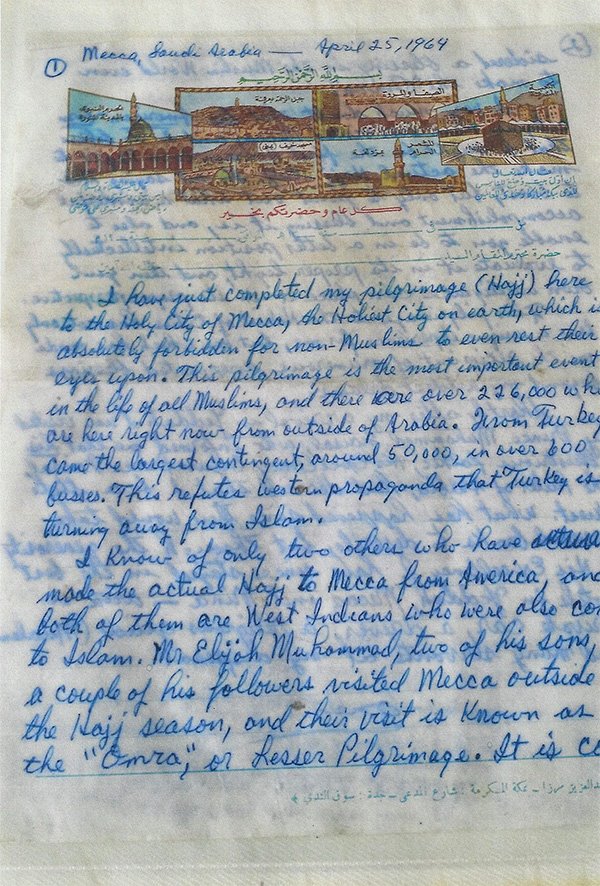 ① Mecca, Saudi Arabia — April 25, 1964
بسم الله الرحمن الرحيم
جبل الرحمة بعرفة
الصفا والمروة
مسجد خيف (منى)
المشعر الحرام بمزدلفة
كل عام وحضرتكم بخير
I have just completed my pilgrimage (Hajj) here
to the Holy City of Mecca, the Holiest City on earth, which is
absolutely forbidden for non-Muslims to even rest their
eyes upon. This pilgrimage is the most important event
in the life of all Muslims, and there were over 226,000 who
are here right now from outside of Arabia. From Turkey
came the largest contingent, around 50,000, in over 600
busses. This refutes western propaganda that Turkey is
turning away from Islam.
I Know of only two others who have
made the actual Hajj to Mecca from America, and
both of them are West Indians who were also con
to Islam. Mr Elijah Muhammad, two of his sons,
a couple of his followers visited Mecca outside
the Hajj season, and their visit is Known as
the "Omra," or Lesser Pilgrimage. It is co
مكة المكرمة : شارع المدعى - جدة : سوق الندى